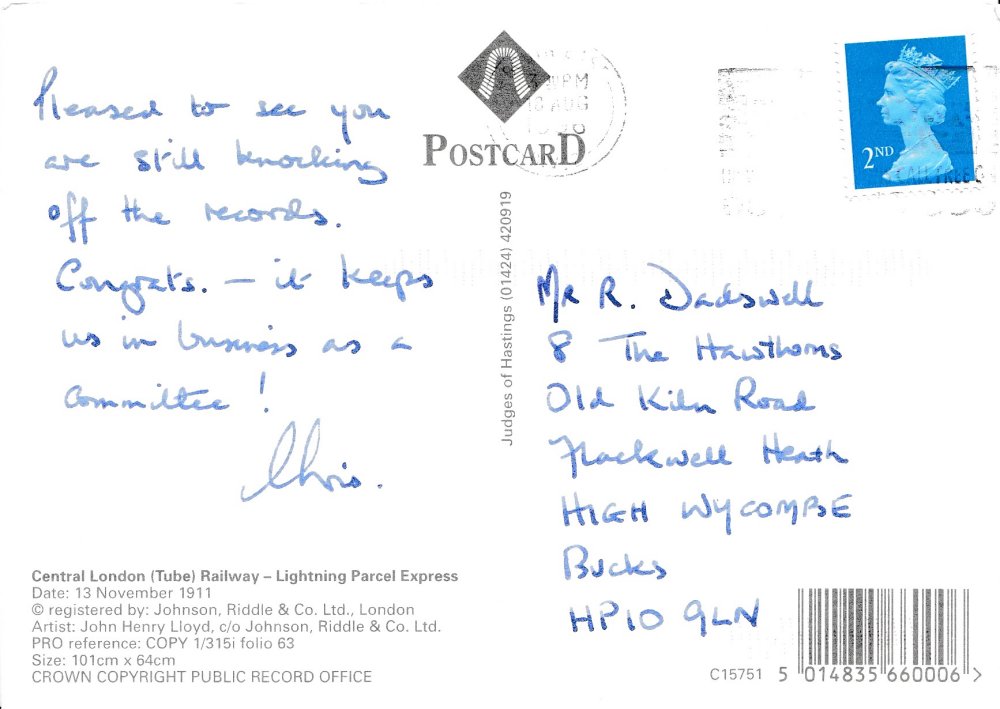 Pleased to see you
are still knocking
off the records.
Congrats. – it keeps
us in business as a
committee!
Chris.
Central London (Tube) Railway – Lightning Parcel Express
Date: 13 November 1911
© registered by: Johnson, Riddle & Co. Ltd., London
Artist: John Henry Lloyd, c/o Johnson, Riddle & Co. Ltd.
PRO reference: COPY 1/315i folio 63
Size: 101cm x 64cm
CROWN COPYRIGHT PUBLIC RECORD OFFICE
POSTCARD
Judges of Hastings (01424) 420919
PM
18 AUG
2ND
Mr R. Dadswell
8 The Hawthorns
Old Kiln Road
Flackwell Heath
HIGH WYCOMBE
Bucks
HP10 9LN
C15751 5 014835 660006 >